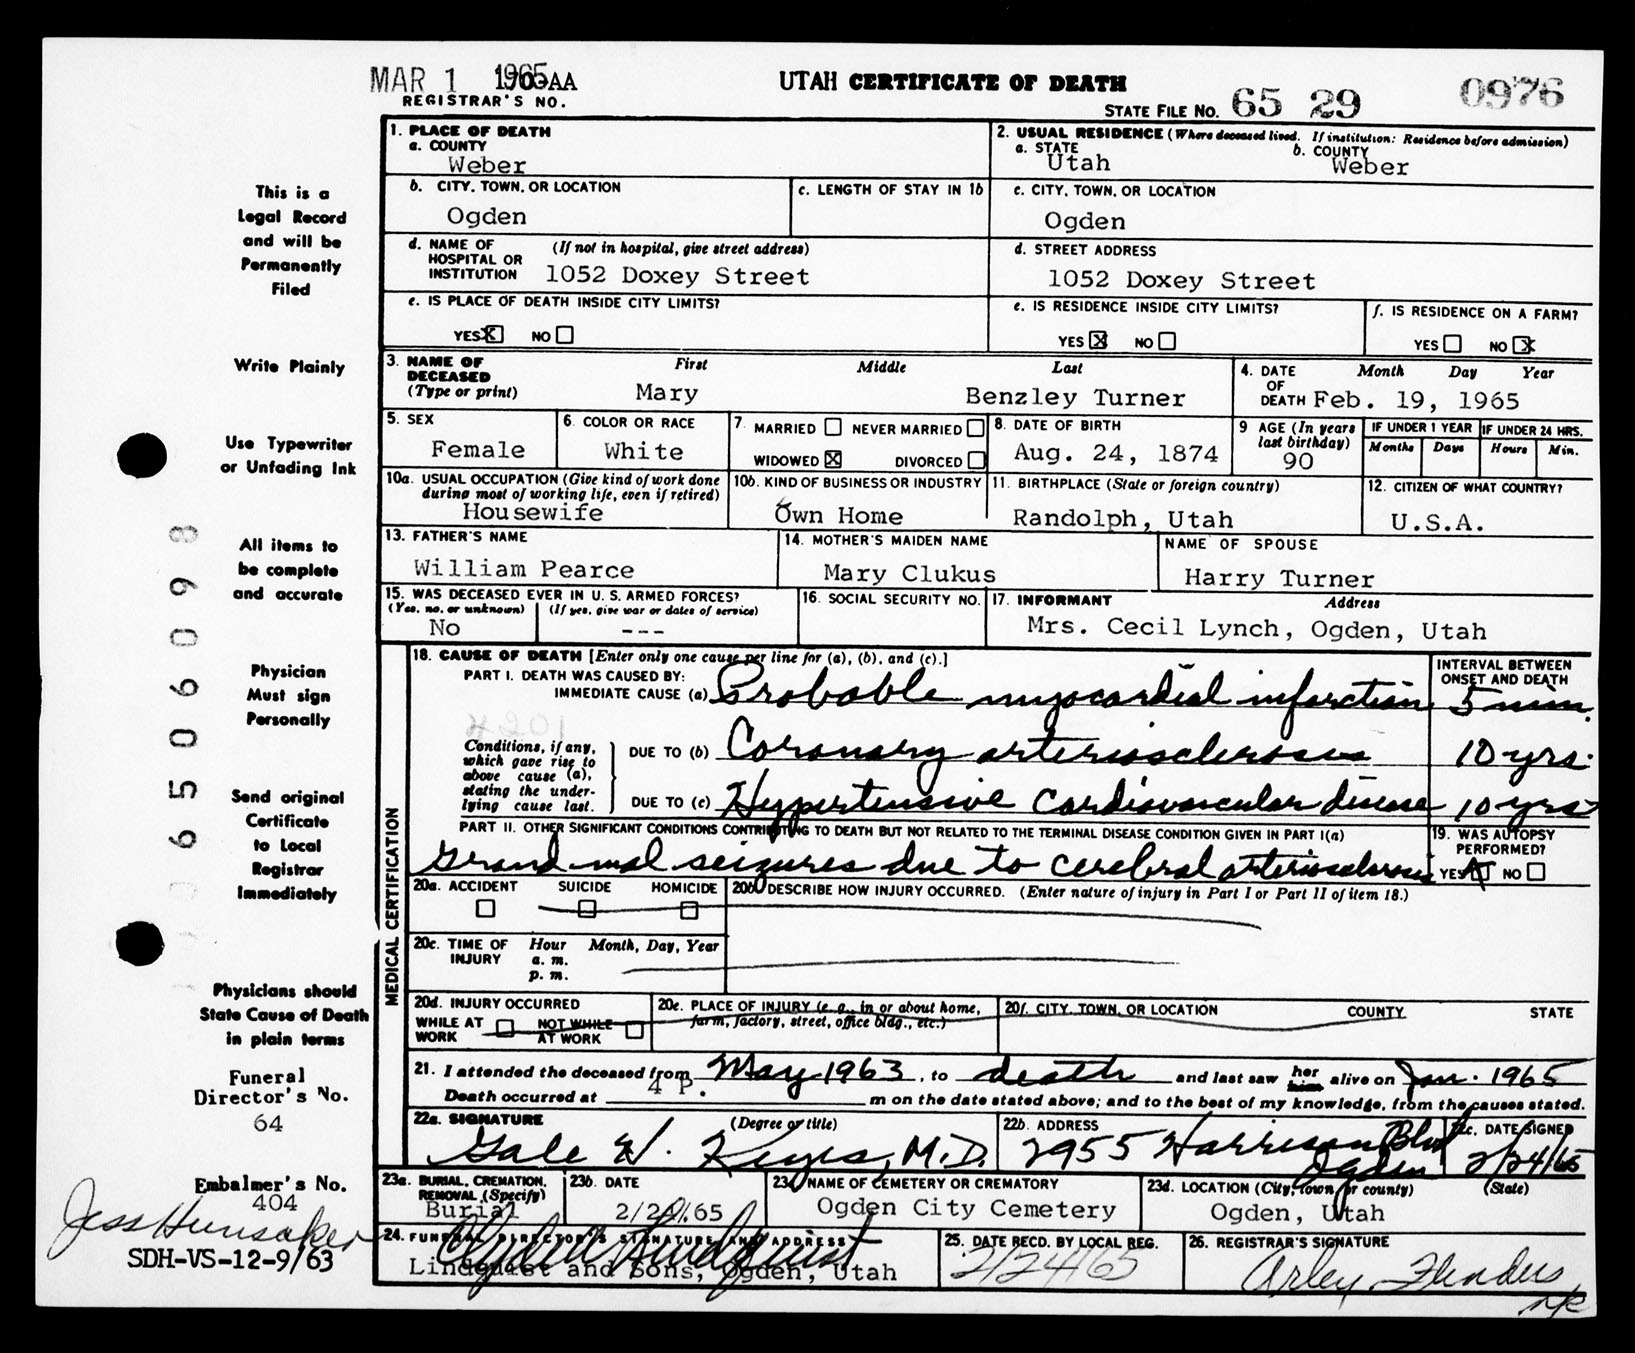 MAR 1 1965
170-AA
REGISTRAR'S NO.
UTAH CERTIFICATE OF DEATH
STATE FILE NO. 65 29 0976
This is a
Legal Record
and will be
Permanently
Filed
Write Plainly
Use Typewriter
or Unfading Ink
All items to
be complete
and accurate
Physician
Must sign
Personally
Send original
Certificate
to Local
Registrar
Immediately
Physicians should
State Cause of Death
in plain terms
Funeral
Director's No.
64
Embalmer's No.
404
Jess Hunsaker
SDH-VS-12-9/63
065050608
1. PLACE OF DEATH
a. COUNTY
Weber
2. USUAL RESIDENCE (Where deceased lived. If institution: Residence before admission)
a. STATE b. COUNTY
Utah Weber
b. CITY, TOWN, OR LOCATION
Ogden
c. LENGTH OF STAY IN 1b
c. CITY, TOWN, OR LOCATION
Ogden
d. NAME OF HOSPITAL OR INSTITUTION (If not in hospital, give street address)
1052 Doxey Street
d. STREET ADDRESS
1052 Doxey Street
e. IS PLACE OF DEATH INSIDE CITY LIMITS?
YES X NO
e. IS RESIDENCE INSIDE CITY LIMITS?
YES X NO
f. IS RESIDENCE ON A FARM?
YES NO X
3. NAME OF DECEASED (Type or print) First Middle Last
Mary Benzley Turner
4. DATE OF DEATH Month Day Year
Feb. 19, 1965
5. SEX
Female
6. COLOR OR RACE
White
7. MARRIED NEVER MARRIED
WIDOWED X DIVORCED
8. DATE OF BIRTH
Aug. 24, 1874
9 AGE (In years last birthday)
90
IF UNDER 1 YEAR
Months Days
IF UNDER 24 HRS.
Hours Min.
10a. USUAL OCCUPATION (Give kind of work done during most of working life, even if retired)
Housewife
10b. KIND OF BUSINESS OR INDUSTRY
Own Home
11. BIRTHPLACE (State or foreign country)
Randolph, Utah
12. CITIZEN OF WHAT COUNTRY?
U.S.A.
13. FATHER'S NAME
William Pearce
14. MOTHER'S MAIDEN NAME
Mary Clukus
NAME OF SPOUSE
Harry Turner
15. WAS DECEASED EVER IN U.S. ARMED FORCES?
(Yes, no, or unknown) (If yes, give war or dates of service)
No ---
16. SOCIAL SECURITY NO.
17. INFORMANT Address
Mrs. Cecil Lynch, Ogden, Utah
MEDICAL CERTIFICATION
18. CAUSE OF DEATH [Enter only one cause per line for (a), (b), and (c).]
INTERVAL BETWEEN ONSET AND DEATH
PART I. DEATH WAS CAUSED BY:
IMMEDIATE CAUSE (a) Probable myocardial infarction 5 min.
Conditions, if any, which gave rise to above cause (a), stating the underlying cause last.
DUE TO (b) Coronary arteriosclerosis 10 yrs.
DUE TO (c) Hypertensive cardiovascular disease 10 yrs
PART II. OTHER SIGNIFICANT CONDITIONS CONTRIBUTING TO DEATH BUT NOT RELATED TO THE TERMINAL DISEASE CONDITION GIVEN IN PART I(a)
Grand mal seizures due to cerebral arteriosclerosis
19. WAS AUTOPSY PERFORMED?
YES X NO
20a. ACCIDENT SUICIDE HOMICIDE
20b. DESCRIBE HOW INJURY OCCURRED. (Enter nature of injury in Part I or Part II of item 18.)
20c. TIME OF INJURY Hour Month, Day, Year
a. m.
p. m.
20d. INJURY OCCURRED
WHILE AT WORK NOT WHILE AT WORK
20e. PLACE OF INJURY (e.g., in or about home, farm, factory, street, office bldg., etc.)
20f. CITY, TOWN, OR LOCATION COUNTY STATE
21. I attended the deceased from May 1963, to death and last saw her him alive on Jan. 1965
Death occurred at 4 P. m on the date stated above; and to the best of my knowledge, from the causes stated.
22a. SIGNATURE (Degree or title)
Gale W. Keyes, M.D.
22b. ADDRESS
2955 Harrison Blvd
Ogden
22c. DATE SIGNED
2/24/65
23a. BURIAL, CREMATION, REMOVAL (Specify)
Burial
23b. DATE
23c. NAME OF CEMETERY OR CREMATORY
Ogden City Cemetery
23d. LOCATION (City, town, or county) (State)
Ogden, Utah
24. FUNERAL DIRECTOR'S SIGNATURE AND ADDRESS
Lindquist and Sons, Ogden, Utah
25. DATE RECD. BY LOCAL REG.
2/24/65
26. REGISTRAR'S SIGNATURE
Arley Flinders